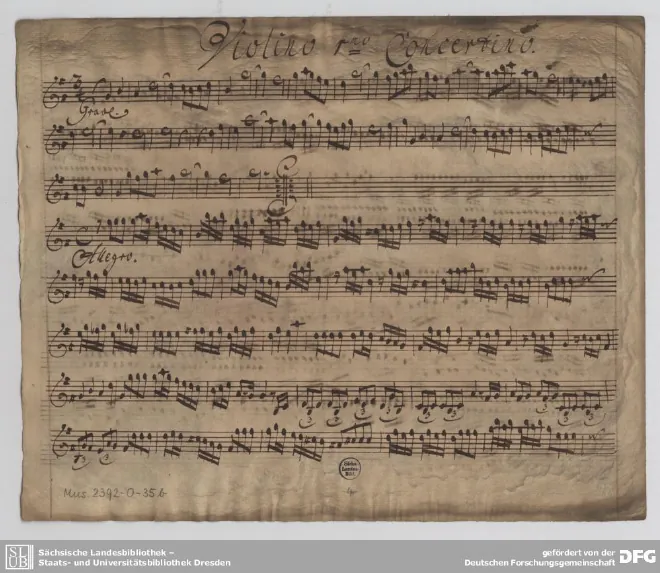 Violino 1mo Concertino.
Grave
Allegro.
3 3 3 3 3 3 3
3 3
Mus. 2392-O-35,6
SLUB
Sächsische Landesbibliothek –
Staats- und Universitätsbibliothek Dresden
gefördert von der
Deutschen Forschungsgemeinschaft
DFG